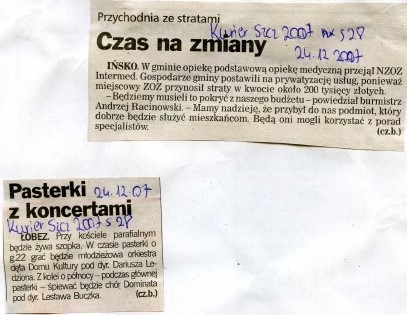 Przychodnia ze stratami
Kurier Szcz 2007 nr s 28
Czas na zmiany
24.12.2007
IŃSKO. W gminie opiekę podstawową opiekę medyczną przejął NZOZ
Intermed. Gospodarze gminy postawili na prywatyzację usług, ponieważ
miejscowy ZOZ przynosił straty w kwocie około 200 tysięcy złotych.
– Będziemy musieli to pokryć z naszego budżetu – powiedział burmistrz
Andrzej Racinowski. – Mamy nadzieję, że przybył do nas podmiot, który
dobrze będzie służyć mieszkańcom. Będą oni mogli korzystać z porad
specjalistów. (cz.b.)
Pasterki 24.12.07
z koncertami
Kurier Szcz 2007 s 28
ŁOBEZ. Przy kościele parafialnym
będzie żywa szopka. W czasie pasterki o
g.22 grać będzie młodzieżowa orkiestra
dęta Domu Kultury pod dyr. Dariusza Le-
dziona. Z kolei o północy – podczas głównej
pasterki – śpiewać będzie chór Dominata
pod dyr. Lesława Buczka. (cz.b.)